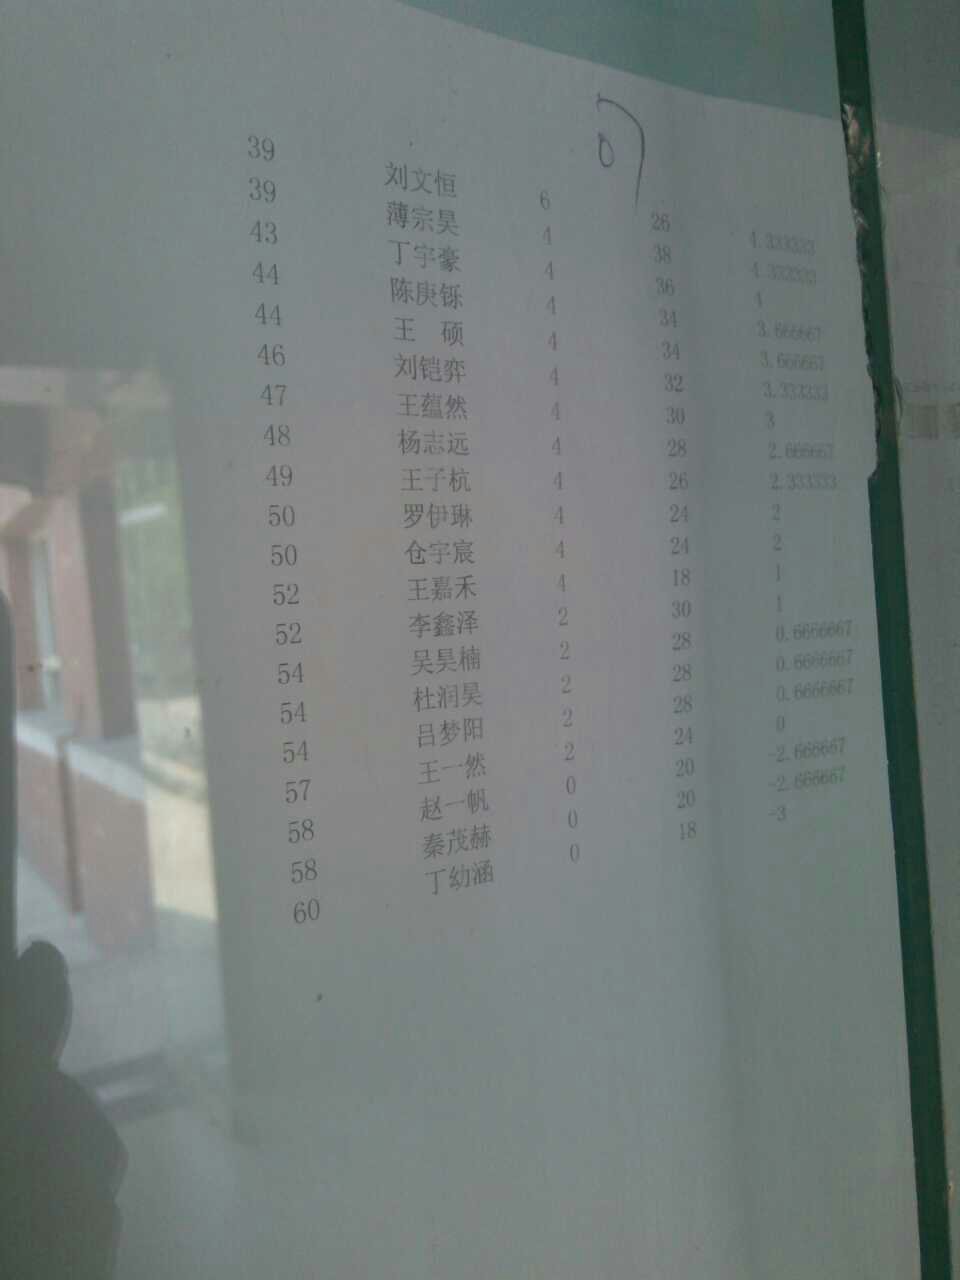 07
39 刘文恒 6 26 4.333333
39 薄宗昊 4 38 4.333333
43 丁宇豪 4 36 4
44 陈庚铄 4 34 3.666667
44 王 硕 4 34 3.666667
46 刘铠弈 4 32 3.333333
47 王蕴然 4 30 3
48 杨志远 4 28 2.666667
49 王子杭 4 26 2.333333
50 罗伊琳 4 24 2
50 仓宇宸 4 24 2
52 王嘉禾 4 18 1
52 李鑫泽 2 30 1
54 吴昊楠 2 28 0.6666667
54 杜润昊 2 28 0.6666667
54 吕梦阳 2 28 0.6666667
57 王一然 2 24 0
58 赵一帆 0 20 -2.666667
58 秦茂赫 0 20 -2.666667
60 丁幼涵 0 18 -3